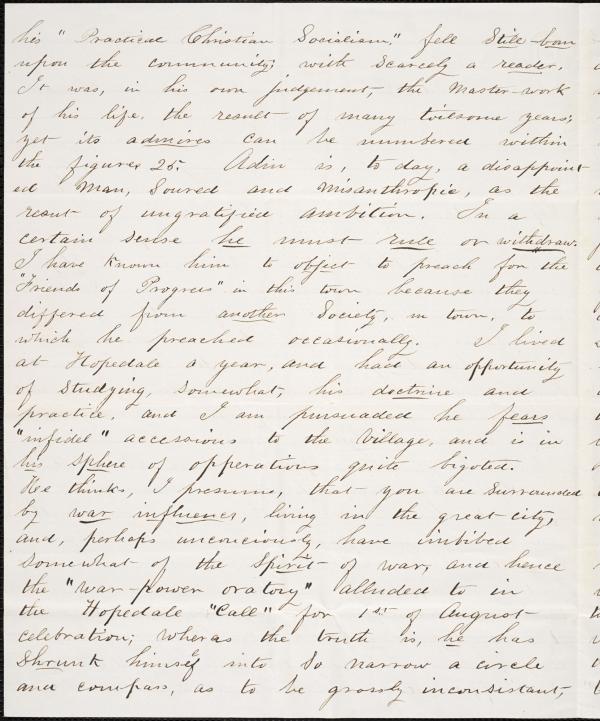 his "Practical Christian Socialism," fell still-born
upon the community; with scarcely a reader.
It was, in his own judgement, the Master-work
of his life. the result of many toilsome years;
yet its admires can be numbered within
the figures 25. Adin is, to day, a disappoint
ed man, soured and misanthropic, as the
resut of ungratified ambition. In a
certain sense he must rule or withdraw.
I have known him to object to preach for the
"Friends of Progress" in this town because they
differed from another Society, in town, to
which he preached occasionally. I lived
at Hopedale a year, and had an opportunity
of studying, somewhat, his doctrine and
practice, and I am pursuaded he fears
"infidel" accessions to the Village, and is in
his sphere of opperations quite bigoted.
Hee thinks, I presume, that you are surrounded
by war influences, living in the great city,
and, perhaps unconciously, have imbibed
somewhat of the spirit of war, and hence
the "war-power oratory" alluded to in
the Hopedale "Call" for 1st of August
celebration; wheras the truth is, he has
shrunk himself into so narrow a circle
and compass, as to be grossly inconsistant,